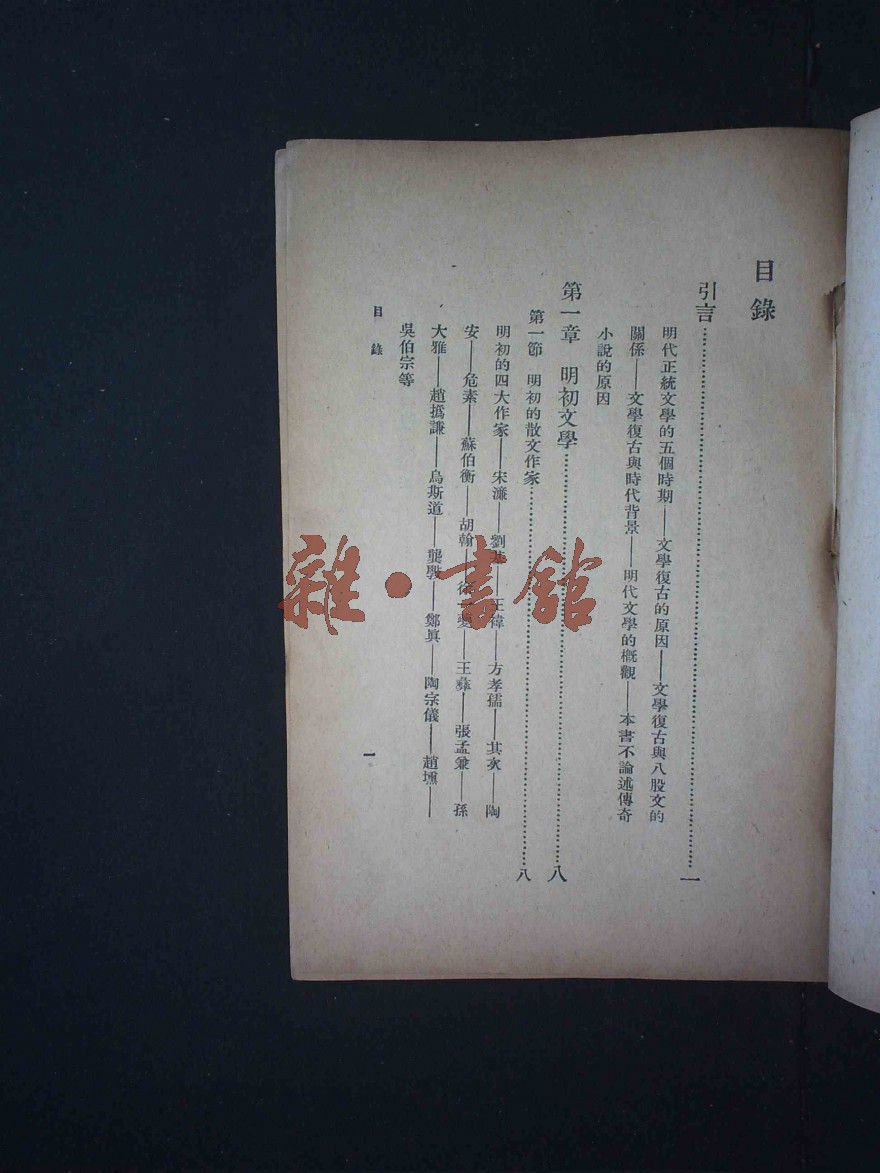 目錄
引言……………………一
明代正統文學的五個時期——文學復古的原因——文學復古與八股文的
關係——文學復古與時代背景——明代文學的概觀——本書不論述傳奇
小說的原因
第一章 明初文學……………………八
第一節 明初的散文作家……………………八
明初的四大作家——宋濂——劉基——王褘——方孝孺——其次——陶
安——危素——蘇伯衡——胡翰——徐一夔——王彝——張孟兼——孫
大雅——趙撝謙——烏斯道——龔斆——鄭眞——陶宗儀——趙壎——
吳伯宗等
目錄
一
雜·書館